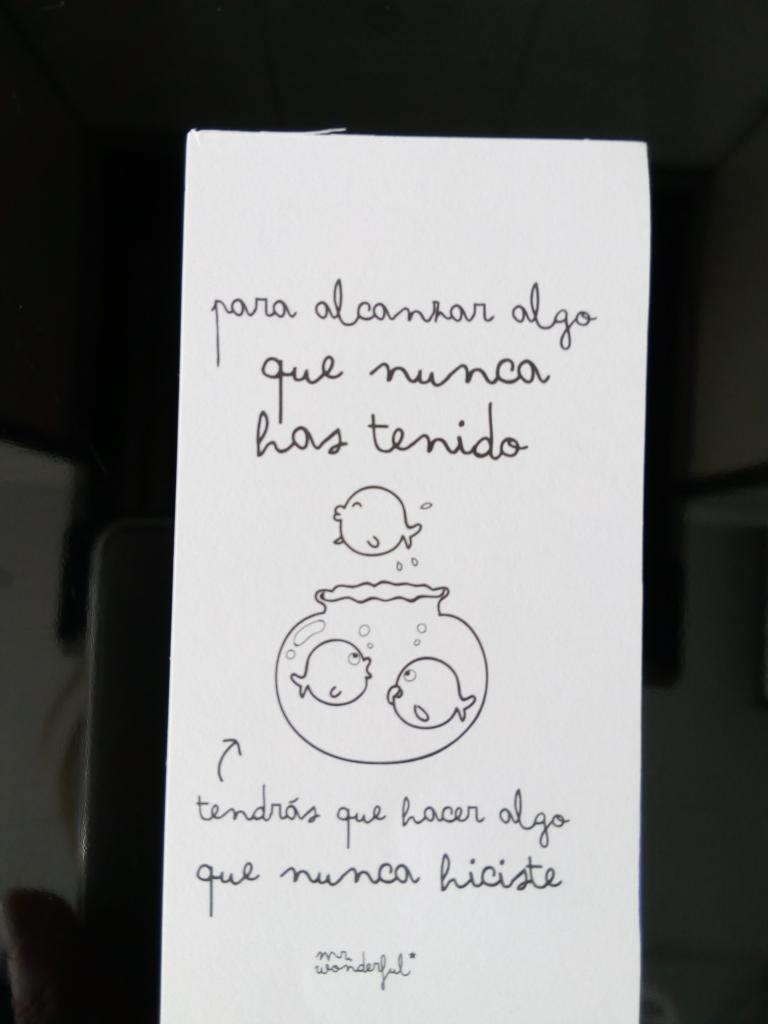 para alcanzar algo
que nunca
has tenido
tendrás que hacer algo
que nunca hiciste
mr.
wonderful*